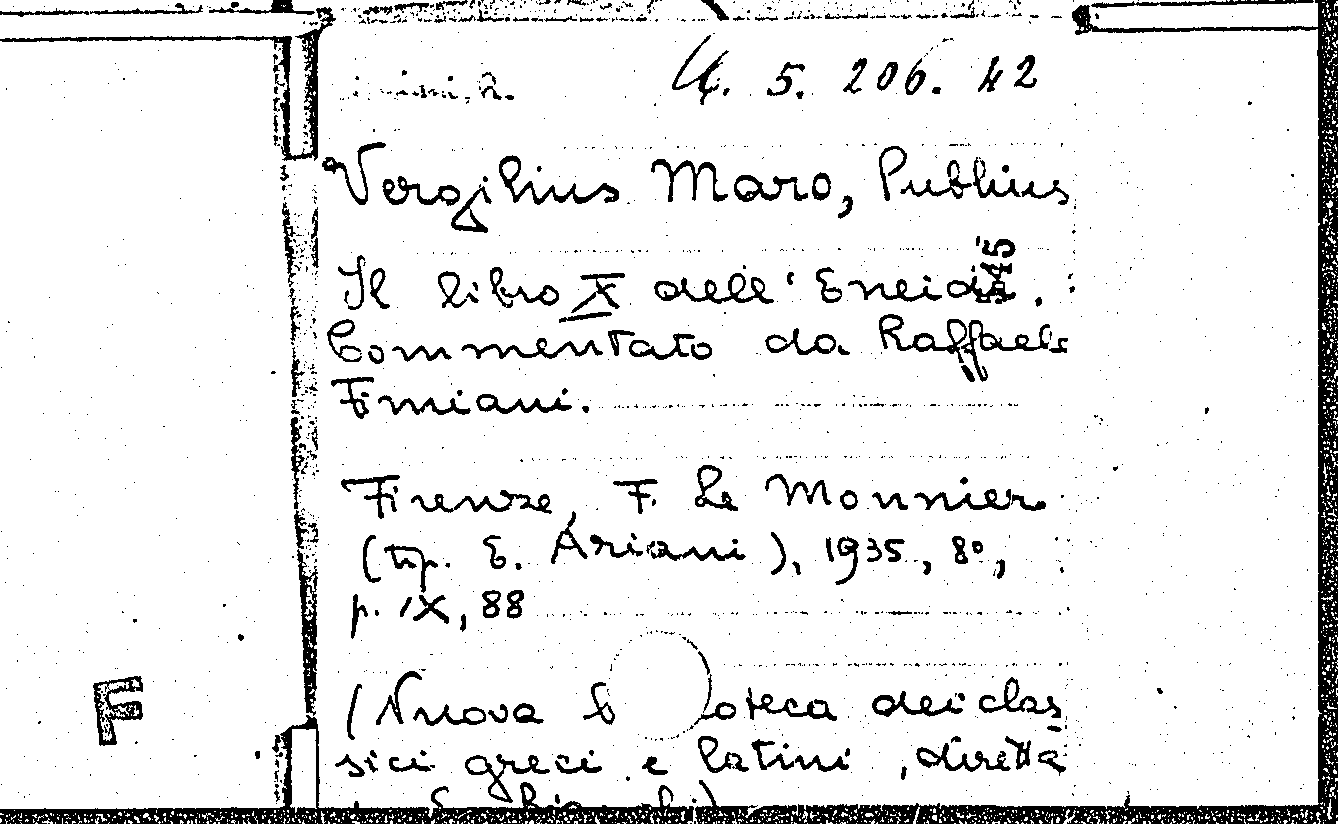 U. 5. 206. 42
Vergilius Maro, Publius
Il libro X dell'Eneide.
545
Commentato da Raffaele
Fimiani.
Firenze, F. Le Monnier
(tip. E. Ariani), 1935, 8°,
p. IX, 88
(Nuova b oteca dei clas
sici greci e latini, diretta
F